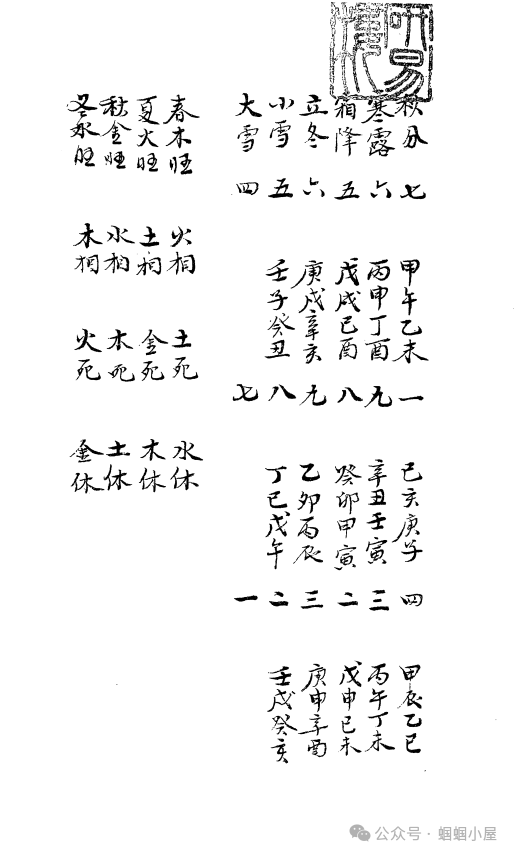 秋分 七 甲午乙未 一 己亥庚子 四 甲辰乙巳
寒露 六 丙申丁酉 九 辛丑壬寅 三 丙午丁未
霜降 五 戊戌己酉 八 癸卯甲寅 二 戊申己未
立冬 六 庚戌辛亥 九 乙卯丙辰 三 庚申辛酉
小雪 五 壬子癸丑 八 丁巳戊午 二 壬戌癸亥
大雪 四 七 一
春木旺 火相 土死 水休
夏火旺 土相 金死 木休
秋金旺 水相 木死 土休
冬水旺 木相 火死 金休
公众号 · 蝈蝈小屋